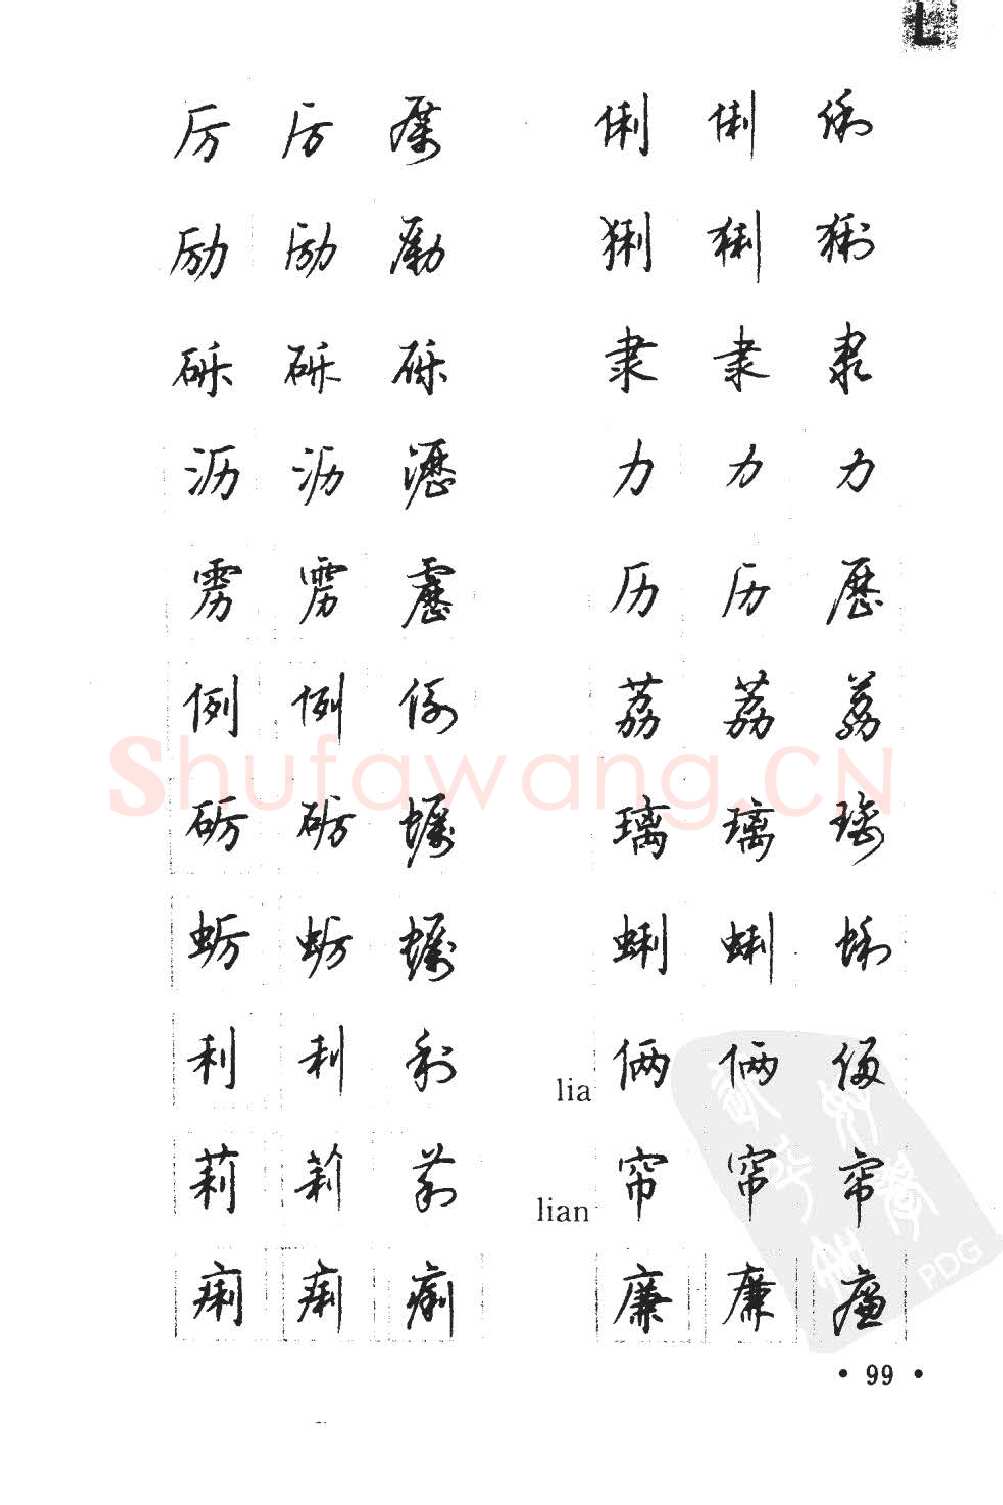 L
厉 厉 厲
励 励 勵
砾 砾 砾
沥 沥 瀝
雳 雳 靂
例 例 例
砺 砺 蠣
蛎 蛎 蠣
利 利 利
莉 莉 莉
痢 痢 痢
俐 俐 俐
猁 猁 猁
隶 隶 隶
力 力 力
历 历 歷
荔 荔 荔
璃 璃 璃
蜊 蜊 蜊
lia 俩 俩 俩
lian 帘 帘 帘
廉 廉 廉
Shufawang.CN
PDG
• 99 •